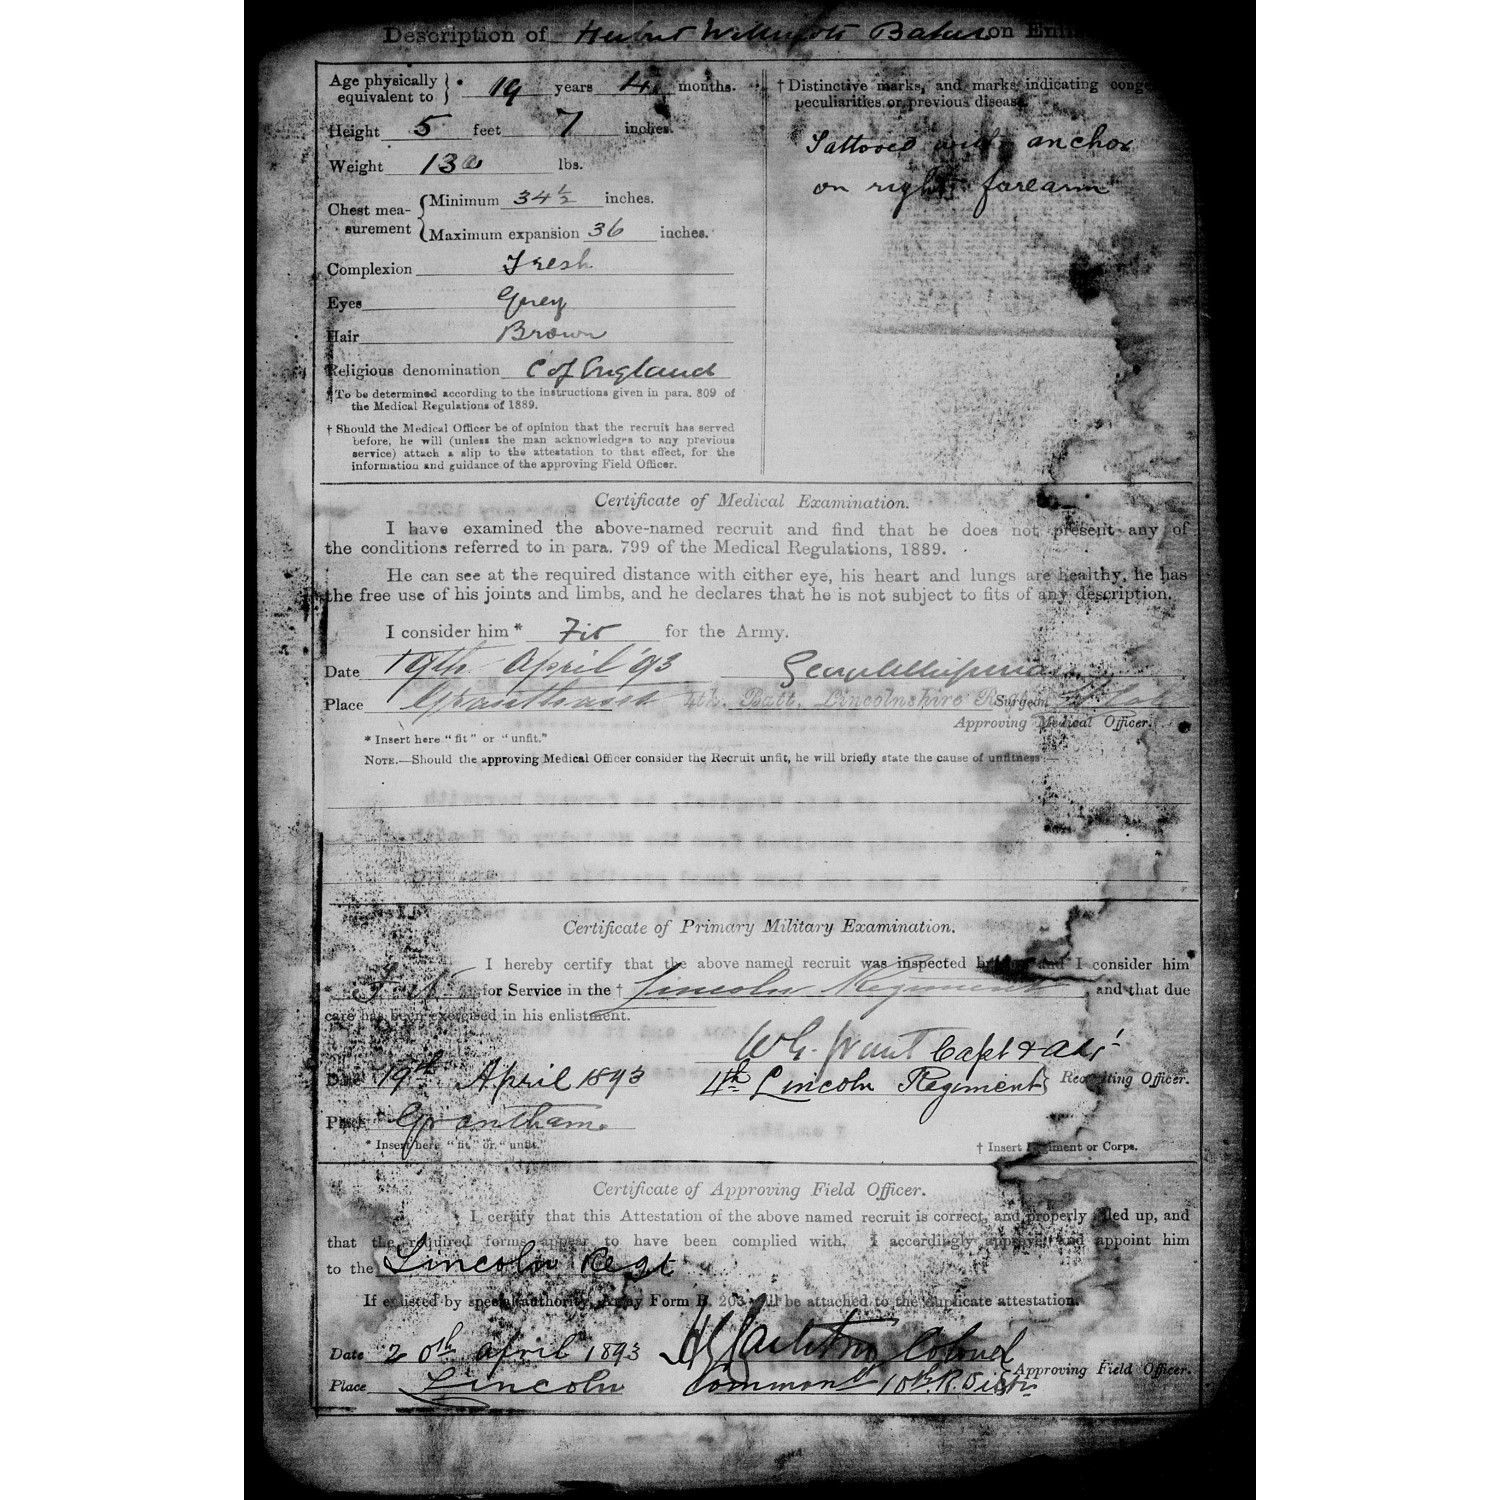 Description of Herbert on
Age physically equivalent to * 19 years 4 months.
Height 5 feet 7 inches.
Weight 130 lbs.
Chest measurement Minimum 34½ inches.
Maximum expansion 36 inches.
Complexion Fresh
Eyes Grey
Hair Brown
Religious denomination C of England
* To be determined according to the instructions given in para. 809 of
the Medical Regulations of 1889.
† Should the Medical Officer be of opinion that the recruit has served
before, he will (unless the man acknowledges to any previous
service) attach a slip to the attestation to that effect, for the
information and guidance of the approving Field Officer.
† Distinctive marks, and marks indicating
peculiarities or previous disease.
Tattooed with anchor
on right forearm
Certificate of Medical Examination.
I have examined the above-named recruit and find that he does not present any of
the conditions referred to in para. 799 of the Medical Regulations, 1889.
He can see at the required distance with either eye, his heart and lungs are healthy, he has
the free use of his joints and limbs, and he declares that he is not subject to fits of any description.
I consider him * Fit for the Army.
Date 19th April '93
Place Grantham 4th. Batt. Lincolnshire Surgeon
Approving Medical Officer.
* Insert here "fit" or "unfit."
NOTE.—Should the approving Medical Officer consider the Recruit unfit, he will briefly state the cause of unfitness:—
Certificate of Primary Military Examination.
I hereby certify that the above named recruit was inspected by me, and I consider him
Fit for Service in the † Lincoln Regiment, and that due
care has been exercised in his enlistment.
Capt & Adj
Date 19th April 1893 4th Lincoln Regiment Recruiting Officer.
Place Grantham
* Insert here "fit" or "unfit." † Insert Regiment or Corps.
Certificate of Approving Field Officer.
I certify that this Attestation of the above named recruit is correct, and properly filled up, and
that the required forms appear to have been complied with. I accordingly approve, and appoint him
to the Lincoln Regt
If enlisted by special authority, Army Form B. 203 will be attached to the duplicate attestation.
Date 20th April 1893 Colonel
Approving Field Officer.
Place Lincoln 10th R. Dist